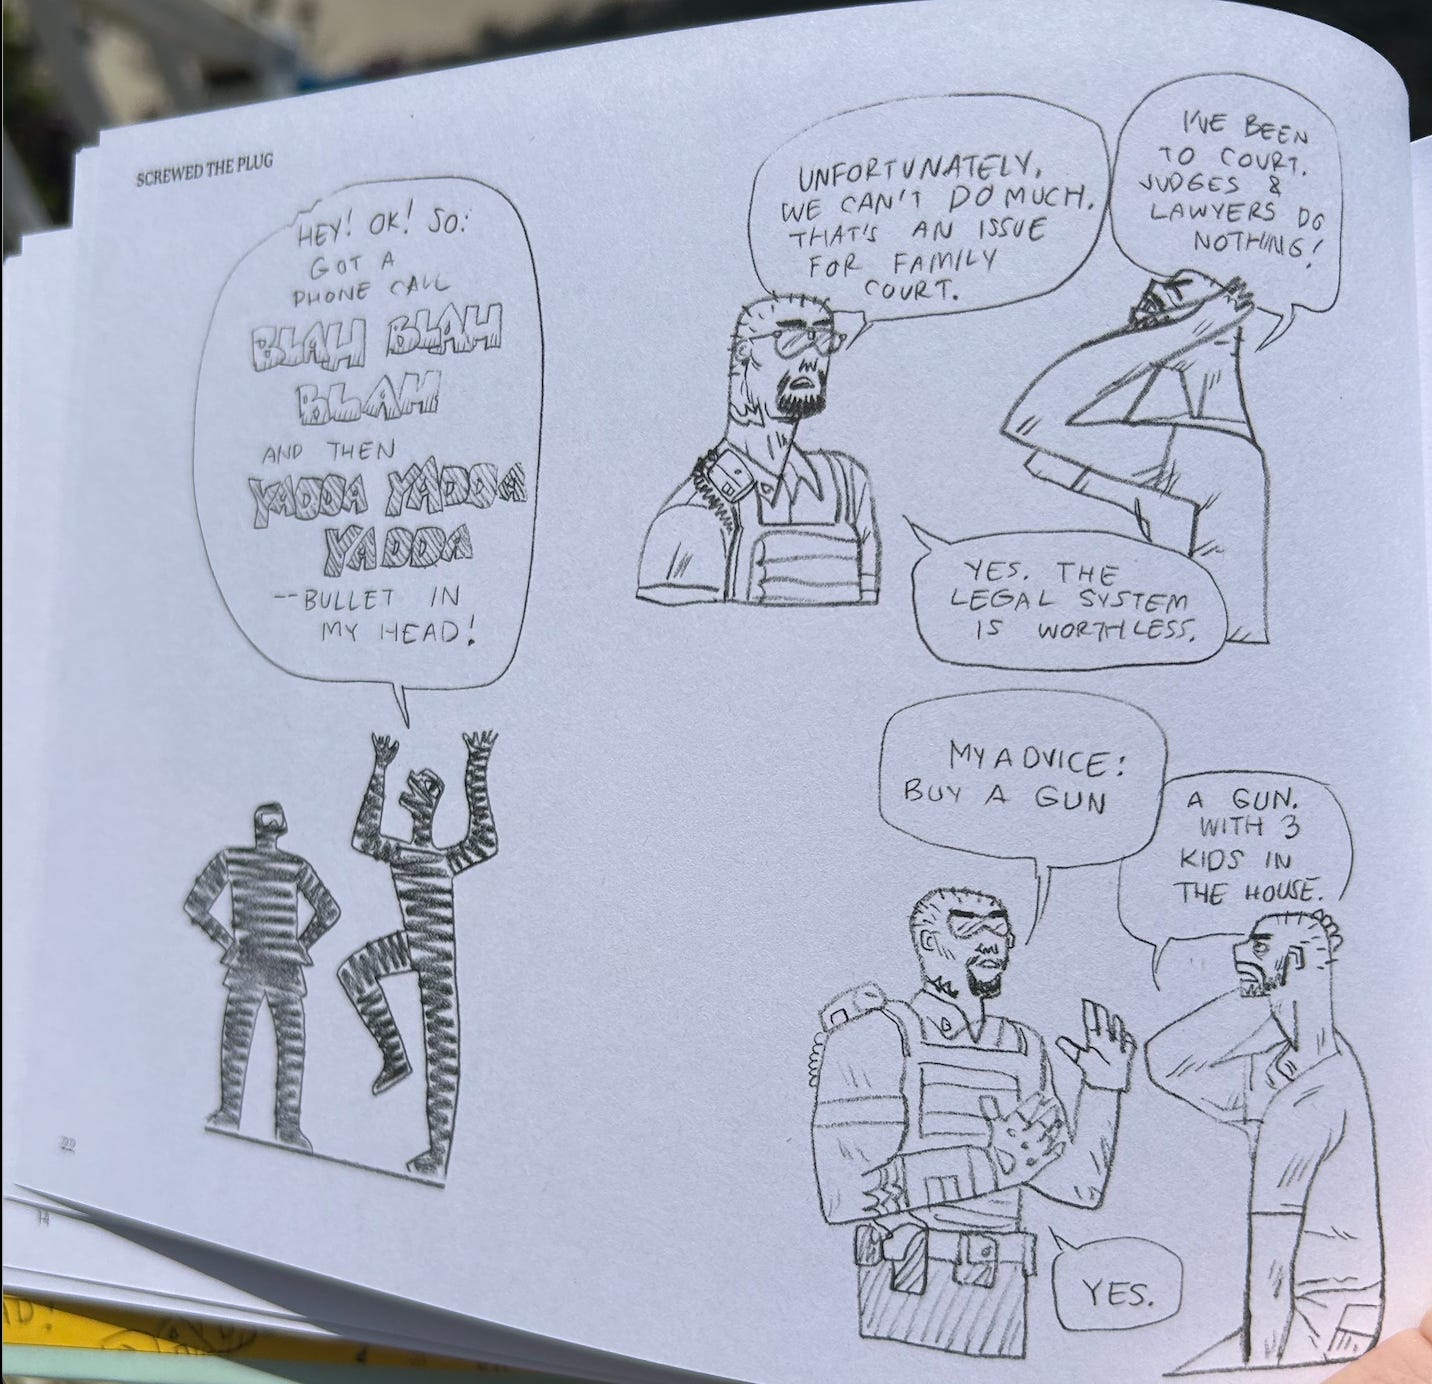 SCREWED THE PLUG
HEY! OK! SO:
GOT A
PHONE CALL
BLAH BLAH
BLAH
AND THEN
YADDA YADDA
YADDA
--BULLET IN
MY HEAD!
UNFORTUNATELY,
WE CAN'T DO MUCH.
THAT'S AN ISSUE
FOR FAMILY
COURT.
I'VE BEEN
TO COURT.
JUDGES &
LAWYERS DO
NOTHING!
YES. THE
LEGAL SYSTEM
IS WORTHLESS.
MY ADVICE:
BUY A GUN
A GUN.
WITH 3
KIDS IN
THE HOUSE.
YES.
22
14